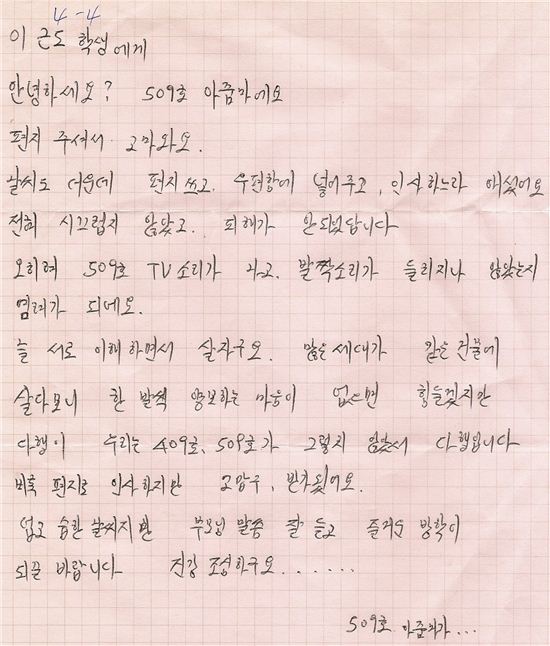 4-4
이 근도 학생에게
안녕하세요? 509호 아줌마에요
편지 주셔서 고마와요.
날씨도 더운데 편지 쓰고. 우편함에 넣어주고, 인사하느라 애썼어요
전혀 시끄럽지 않았고. 피해가 안되었답니다
오히려 509호 TV소리가 나고. 발짝소리가 들리지나 않았는지
염려가 되네요.
늘 서로 이해하면서 살자구요. 많은세대가 같은 건물에
살다보니 한 발씩 양보하는 마음이 없으면 힘들겠지만
다행이 우리는 409호, 509호가 그렇지 않았서 다행입니다
비록 편지로 인사하지만 고맙구, 반가웠어요.
덥고 습한 날씨지만 부모님 말씀 잘 듣고 즐거운 방학이
되길 바랍니다 건강 조심하구요.......
509호 아줌마가...